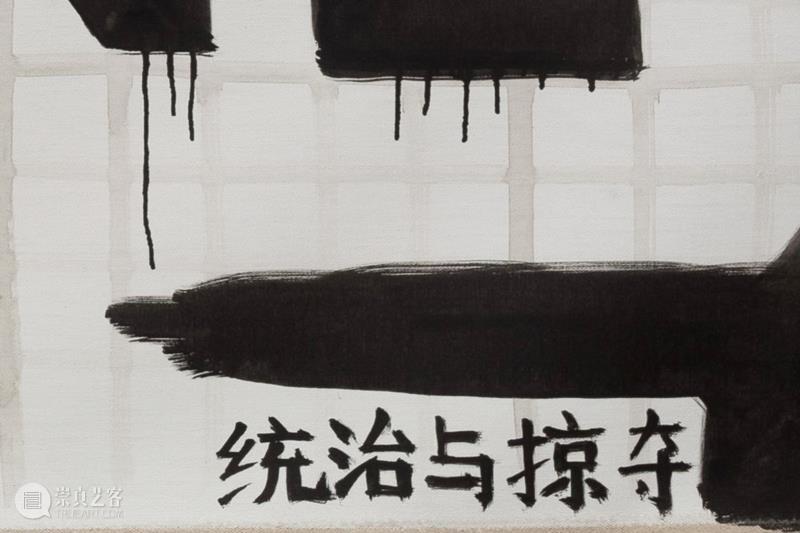 统治与掠夺
崇真艺客
TRUEART.COM